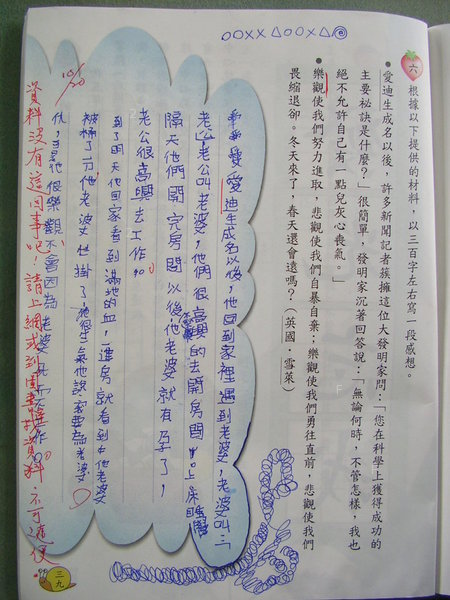 ○○××△○○×△
六 根據以下提供的材料，以三百字左右寫一段感想。
●愛迪生成名以後，許多新聞記者簇擁這位大發明家問：「您在科學上獲得成功的
主要祕訣是什麼？」很簡單，發明家沉著回答說：「無論何時，不管怎樣，我也
絕不允許自己有一點兒灰心喪氣。」
●樂觀使我們努力進取，悲觀使我們自暴自棄；樂觀使我們勇往直前，悲觀使我們
畏縮退卻。冬天來了，春天還會遠嗎？（英國．雪萊）
愛迪生成名以後，他回到家裡遇到老婆，老婆叫
老公，老公叫老婆，他們很高興的去開房間 上床睡覺
隔天他們開完房間以後他老婆就有孕了，
老公很高興去工作。
到了明天他回家看到滿地的血，進房就看到他老婆
被 他老婆也掛了 他很生氣他說 要為老婆
仇，他很樂觀不會因為老婆死 工作。
10/20
資料沒有這回事吧！請上網或到圖書 找資料 不可
三九